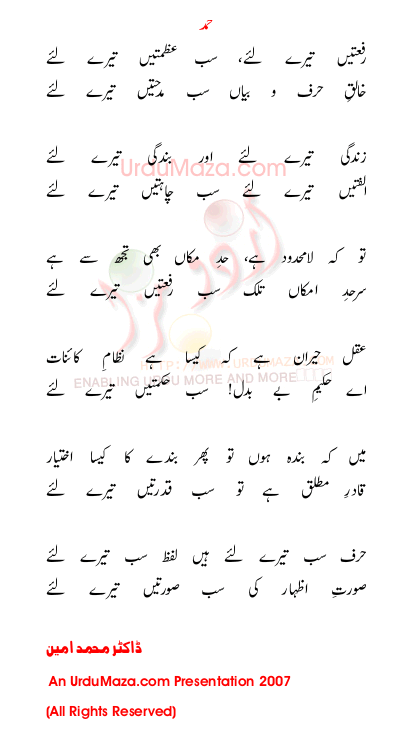 حمد
رفعتیں تیرے لئے، سب عظمتیں تیرے لئے
خالقِ حرف و بیاں سب مدحتیں تیرے لئے
زندگی تیرے لئے اور بندگی تیرے لئے
UrduMaza.com
الفتیں تیرے لئے سب چاہتیں تیرے لئے
تو کہ لامحدود ہے، حدِ مکاں بھی تجھ سے ہے
سرحدِ امکاں تلک سب رفعتیں تیرے لئے
عقل حیران ہے کہ کیسا ہے نظامِ کائنات
HTTP://WWW.URDUMAZA.COM
ENABLING URDU MORE AND MORE
اے حکیمِ بے بدل! سب حکمتیں تیرے لئے
میں کہ بندہ ہوں تو پھر بندے کا کیسا اختیار
قادرِ مطلق ہے تو سب قدرتیں تیرے لئے
حرف سب تیرے لئے ہیں لفظ سب تیرے لئے
صورتِ اظہار کی سب صورتیں تیرے لئے
ڈاکٹر محمد امین
An UrduMaza.com Presentation 2007
(All Rights Reserved)